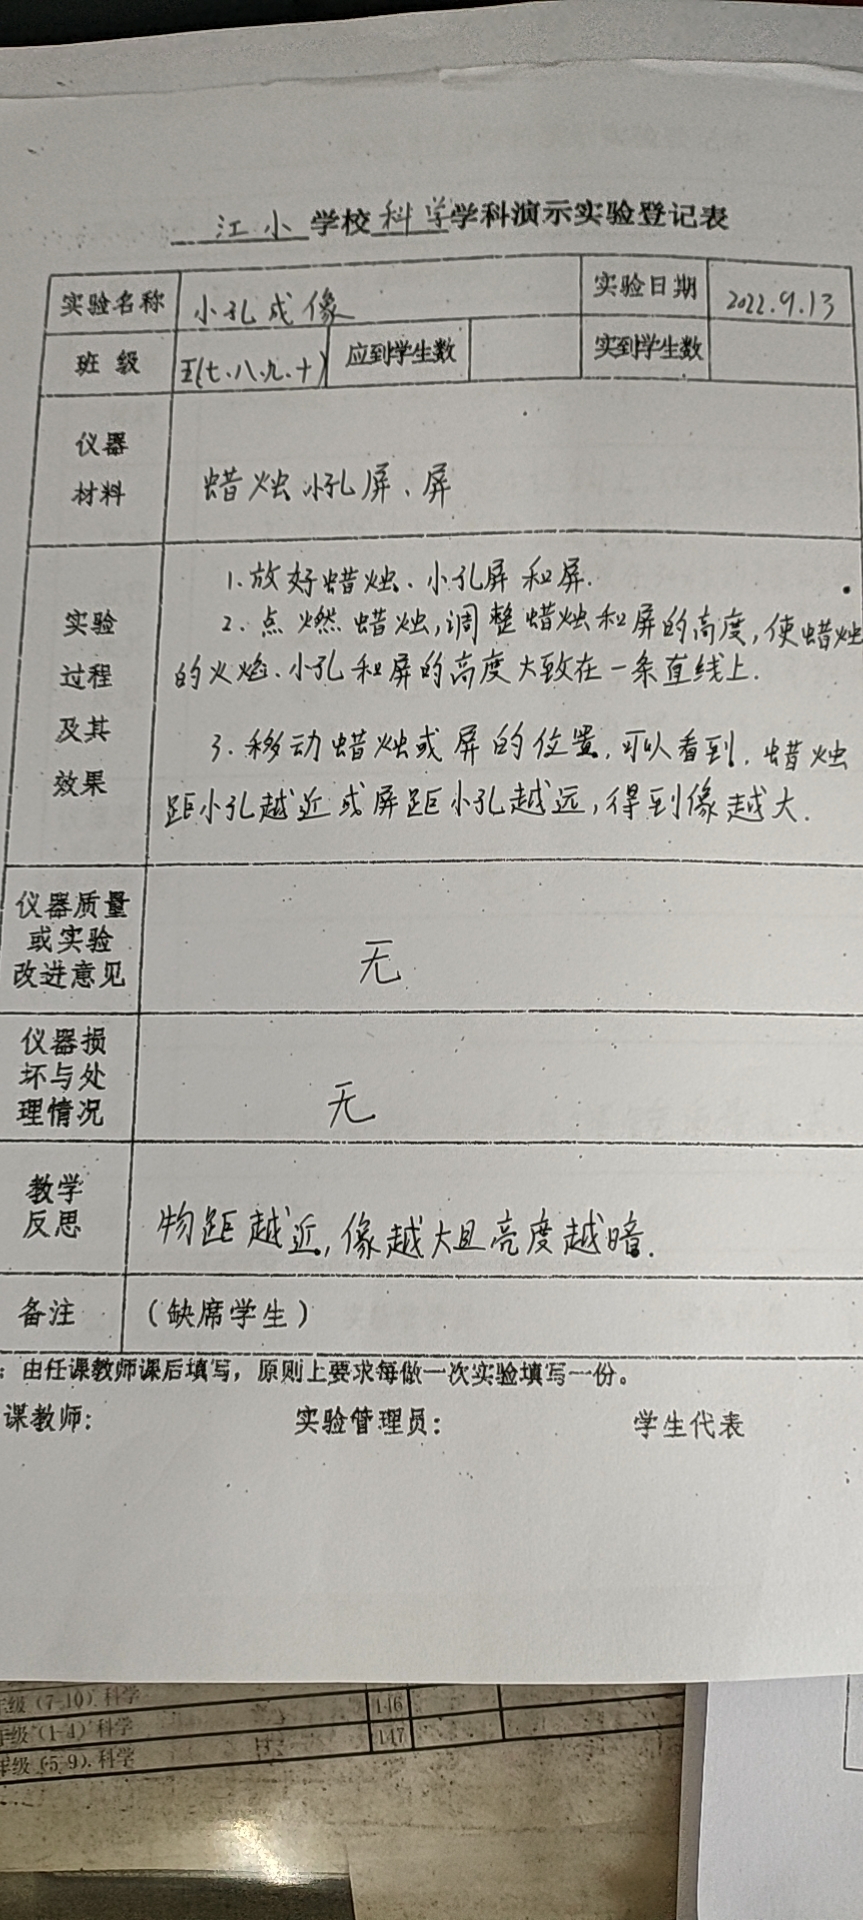 江小 学校 科学 学科演示实验登记表
实验名称 小孔成像 实验日期 2022.9.13
班 级 五(七、八、九、十) 应到学生数 实到学生数
仪器
材料
蜡烛 小孔屏、屏
实验
过程
及其
效果
1.放好蜡烛、小孔屏和屏.
2.点燃蜡烛,调整蜡烛和屏的高度,使蜡烛
的火焰、小孔和屏的高度大致在一条直线上.
3.移动蜡烛或屏的位置,可以看到,蜡烛
距小孔越近或屏距小孔越远,得到像越大.
仪器质量
或实验
改进意见
无
仪器损
坏与处
理情况
无
教学
反思
物距越近,像越大且亮度越暗.
备注 (缺席学生)
:由任课教师课后填写，原则上要求每做一次实验填写一份。
课教师: 实验管理员: 学生代表
级 (7-10) 科学 146
级 (1-4) 科学 147
年级 (5-9) 科学